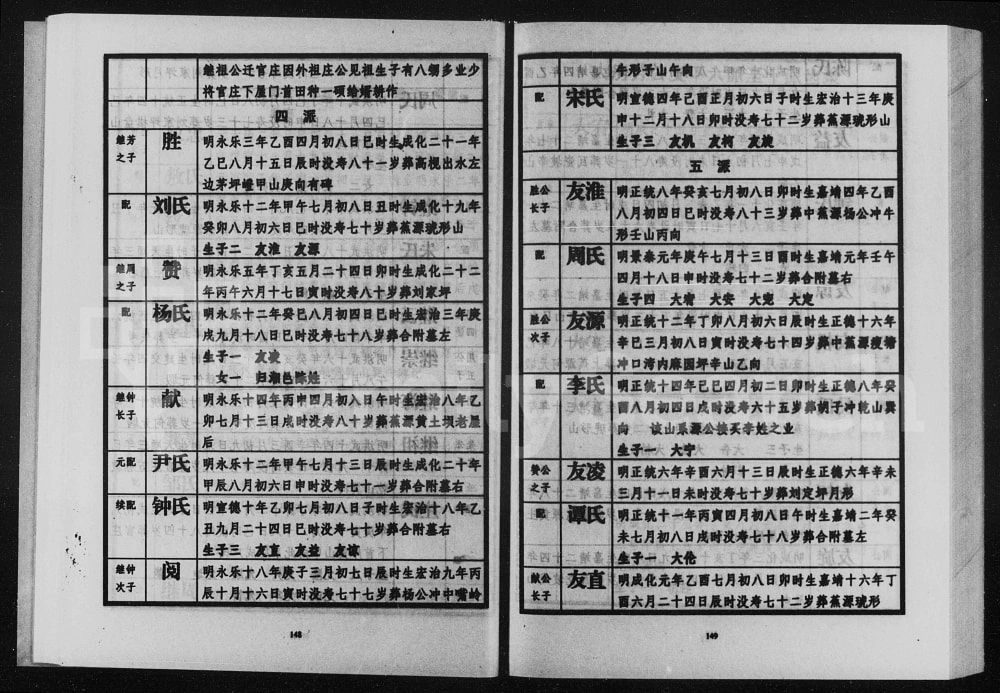 继祖公迁官庄因外祖庄公见祖生子有八甥多业少
将官庄下屋门首田种一硕给婿耕作
四派
继芳之子
胜
明永乐三年乙酉四月初八日巳时生成化二十一年
乙巳八月十五日辰时没寿八十一岁葬高枧出水左
边茅坪嶝甲山庚向有碑
配
刘氏
明永乐十二年甲午七月初八日丑时生成化十九年
癸卯八月初六日巳时没寿七十岁葬蕉源琥形山
生子二 友淮 友源
继周之子
赞
明永乐五年丁亥五月二十四日卯时生成化二十二
年丙午六月十七日寅时没寿八十岁葬刘家坪
配
杨氏
明永乐十二年癸巳八月初四日巳时生宏治三年庚
戌九月十八日巳时没寿七十八岁葬合附墓左
生子一 友凌
女一 归湘邑陈姓
继钟长子
献
明永乐十四年丙申四月初八日午时生宏治八年乙
卯七月十三日戌时没寿八十岁葬蕉源黄土坝老屋
后
元配
尹氏
明永乐十二年甲午七月十三日辰时生成化二十年
甲辰八月初六日申时没寿七十一岁葬合附墓右
续配
钟氏
明宣德十年乙卯七月初八日子时生宏治十八年乙
丑九月二十四日巳时没寿七十一岁葬合附墓左
生子三 友直 友益 友谅
继钟次子
阅
明永乐十八年庚子三月初七日辰时生宏治九年丙
辰十月十六日寅时没寿七十七岁葬杨公冲中嘴岭
148
牛形子山午向
配
宋氏
明宣德四年己酉正月初六日子时生宏治十三年庚
申十二月十八日卯时没寿七十二岁葬蕉源琥形山
生子三 友机 友柯 友旋
五派
胜公长子
友淮
明正统八年癸亥七月初八日卯时生嘉靖四年乙酉
八月初四日巳时没寿八十三岁葬中蕉源杨公冲牛
形壬山丙向
配
周氏
明景泰元年庚午七月十三日酉时生嘉靖元年壬午
四月十八日申时没寿七十二岁葬合附墓右
生子四 大宥 大安 大宽 大定
胜公次子
友源
明正统十二年丁卯八月初六日辰时生正德十六年
辛巳三月初八日寅时没寿七十五岁葬中蕉源瘦塘
冲口湾内麻园坪辛山乙向
配
李氏
明正统十四年己巳四月初二日卯时生正德八年癸
酉八月初四日戌时没寿六十五岁葬胡子冲乾山巽
向 该山系源公接买李姓之业
生子一 大宇
赞公之子
友凌
明正统六年辛酉六月十三日辰时生正德六年辛未
三月十一日未时没寿七十岁葬刘定坪月形
配
谭氏
明正统十一年丙寅四月初八日午时生嘉靖二年癸
未七月初八日戌时没寿七十八岁葬合附墓左
生子一 大伦
献公长子
友直
明成化元年乙酉七月初八日卯时生嘉靖十六年丁
酉六月二十四日辰时没寿七十二岁葬蕉源琥形
149